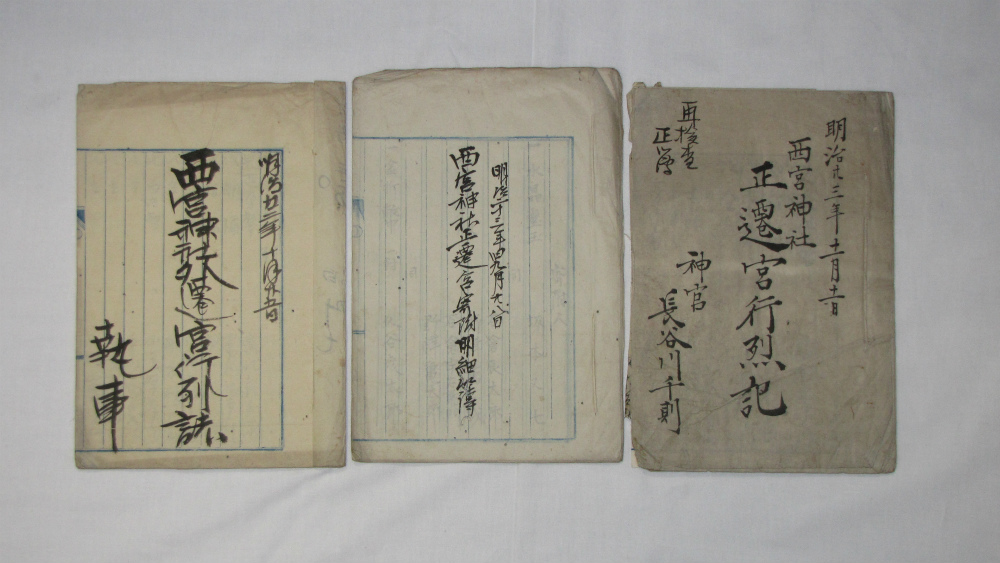 明治廿三年十一月十一日
西宮神社
正遷宮行烈記
神官
長谷川千則
再検査
正学
明治二十三年
西宮神社正遷宮寄附明細簿
明治廿三年十
西宮神社外遷宮行列誌
執事